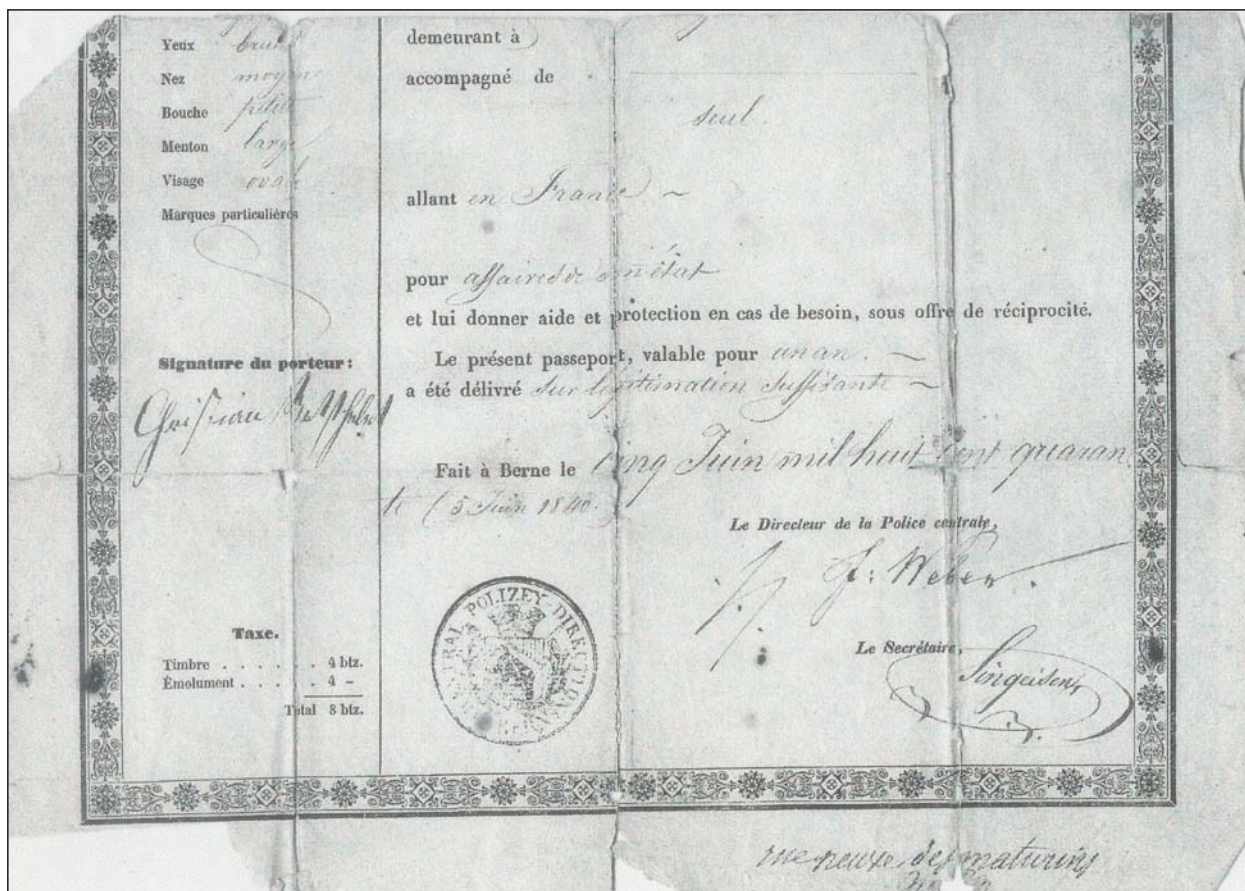 Yeux bruns
Nez moyen
Bouche petite
Menton large
Visage ovale
Marques particulières
Signature du porteur:
Taxe.
Timbre . . . . . . 4 btz.
Émolument . . . . 4 –
Total 8 btz.
demeurant à
accompagné de
seul.
allant en France ~
pour affaires de son état
et lui donner aide et protection en cas de besoin, sous offre de réciprocité.
Le présent passeport, valable pour un an. ~
a été délivré sur légitimation suffisante ~
Fait à Berne le cinq Juin mil huit cent quaran
te (5 Juin 1840.)
CENTRAL POLIZEY-DIRECTION
Le Directeur de la Police centrale,
F. Weber.
Le Secrétaire,
rue neuve des maturins